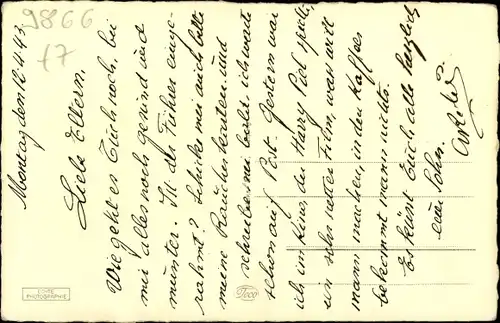 9866
f7
Montag den 12.4.43.
Liebe Eltern.
Wie geht es Euch noch, bei
mir alles noch gesund und
munter. Ist der Führer einge-
rahmt? Schicket mir auch bitte
meine Raucherkarten und
schreibe mir bald. ich warte
schon auf Post. Gestern war
ich im Kino, der Harry Piel spielt,
ein sehr netter Film, was will
mann machen, in den Kaffees
bekommt mann nichts.
Es küsst Euch, alle herzlich
euer Sohn.
ECHTE
PHOTOGRAPHIE